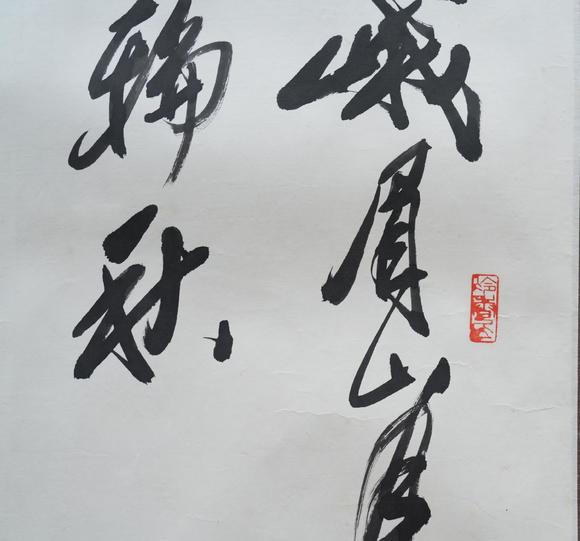 峨眉山月
輪秋